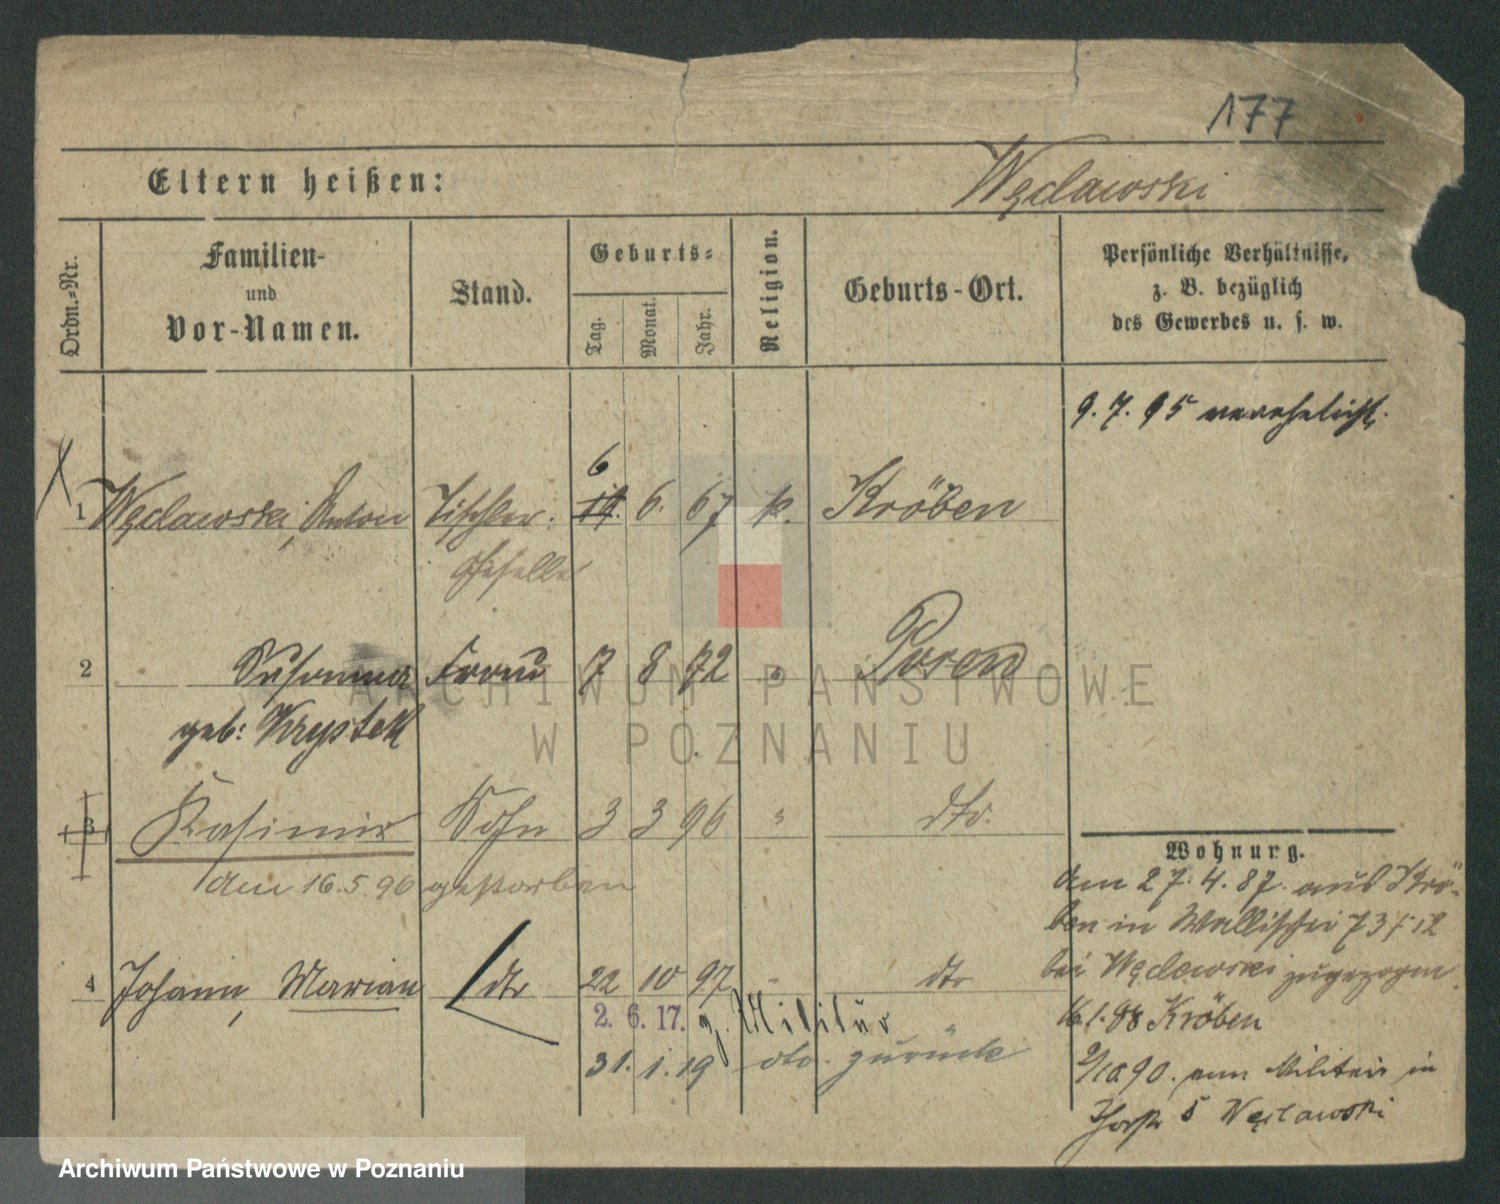 177
Eltern heißen:
Węclawski
Ordn.-Nr.
Familien-
und
Vor-Namen.
Stand.
Geburts-
Tag.
Monat.
Jahr.
Religion.
Geburts-Ort.
Persönliche Verhältnisse,
z. B. bezüglich
des Gewerbes u. s. w.
9. 7. 95 verehelicht.
6
1 Węclawski, Anton Tischler- 19. 6. 67 k. Kröben
Geselle
2 Susanna Frau 7 8 72 " Posen
geb: Krystek
3 Kasimir Sohn 3 3 96 " dto.
den 16. 5. 96 gestorben
4 Johann, Marian dto 22 10 97 " dto
2. 6. 17. z. Militär
31. 1. 19 do. zurück
Wohnung.
Am 27. 4. 87. aus Krö-
ben in Wallischei 73
bei Węclewski zugezogen.
16. 1. 88 Kröben
90. vom Militair in
5 Węclawski
ARCHIWUM PAŃSTWOWE
W POZNANIU
Archiwum Państwowe w Poznaniu